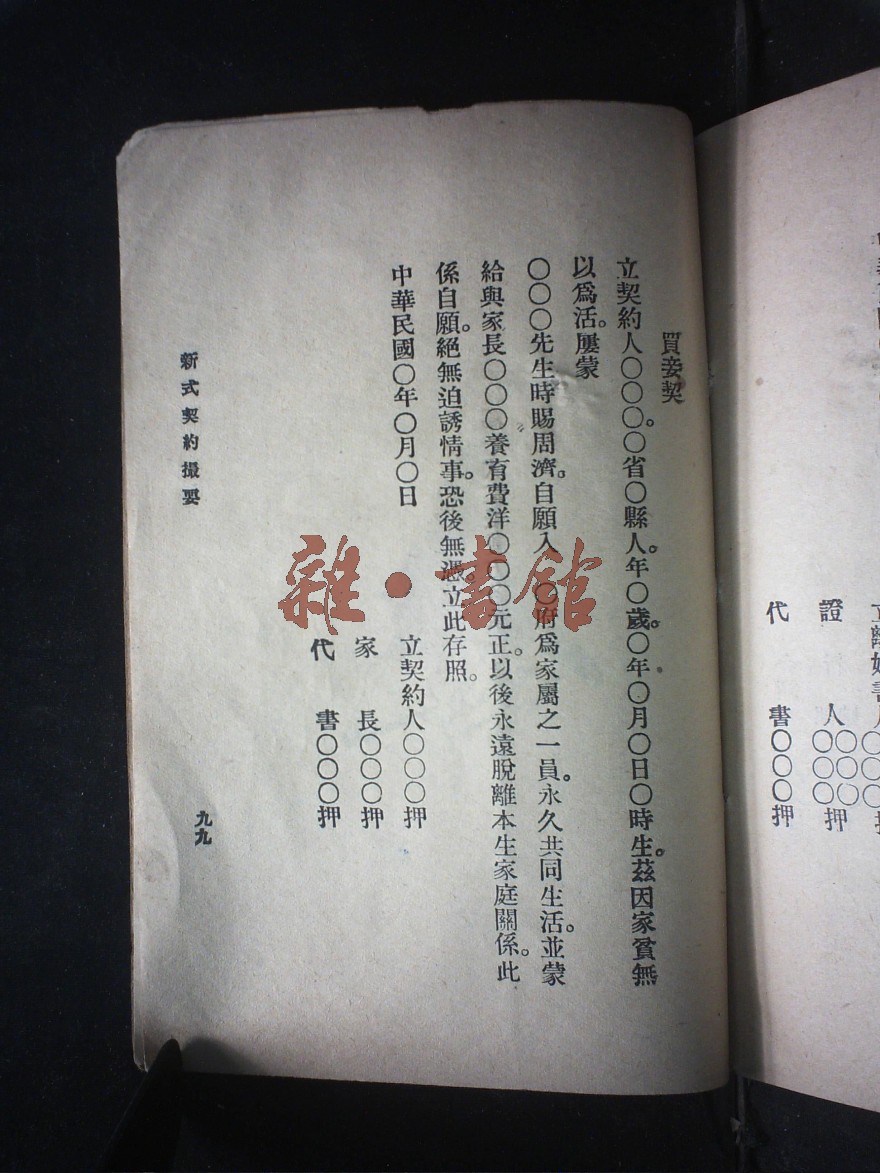 證　人〇〇〇押
代　書〇〇〇押
買妾契
立契約人〇〇〇。〇省〇縣人。年〇歲。〇年〇月〇日〇時生。茲因家貧無
以爲活。屢蒙
〇〇〇先生時賜周濟。自願入　〇府爲家屬之一員。永久共同生活。並蒙
給與家長〇〇〇養育費洋〇〇〇元正。以後永遠脫離本生家庭關係。此
係自願。絕無迫誘情事。恐後無憑。立此存照。
中華民國〇年〇月〇日
立契約人〇〇〇押
家　長〇〇〇押
代　書〇〇〇押
新式契約撮要
九九
雜·書館